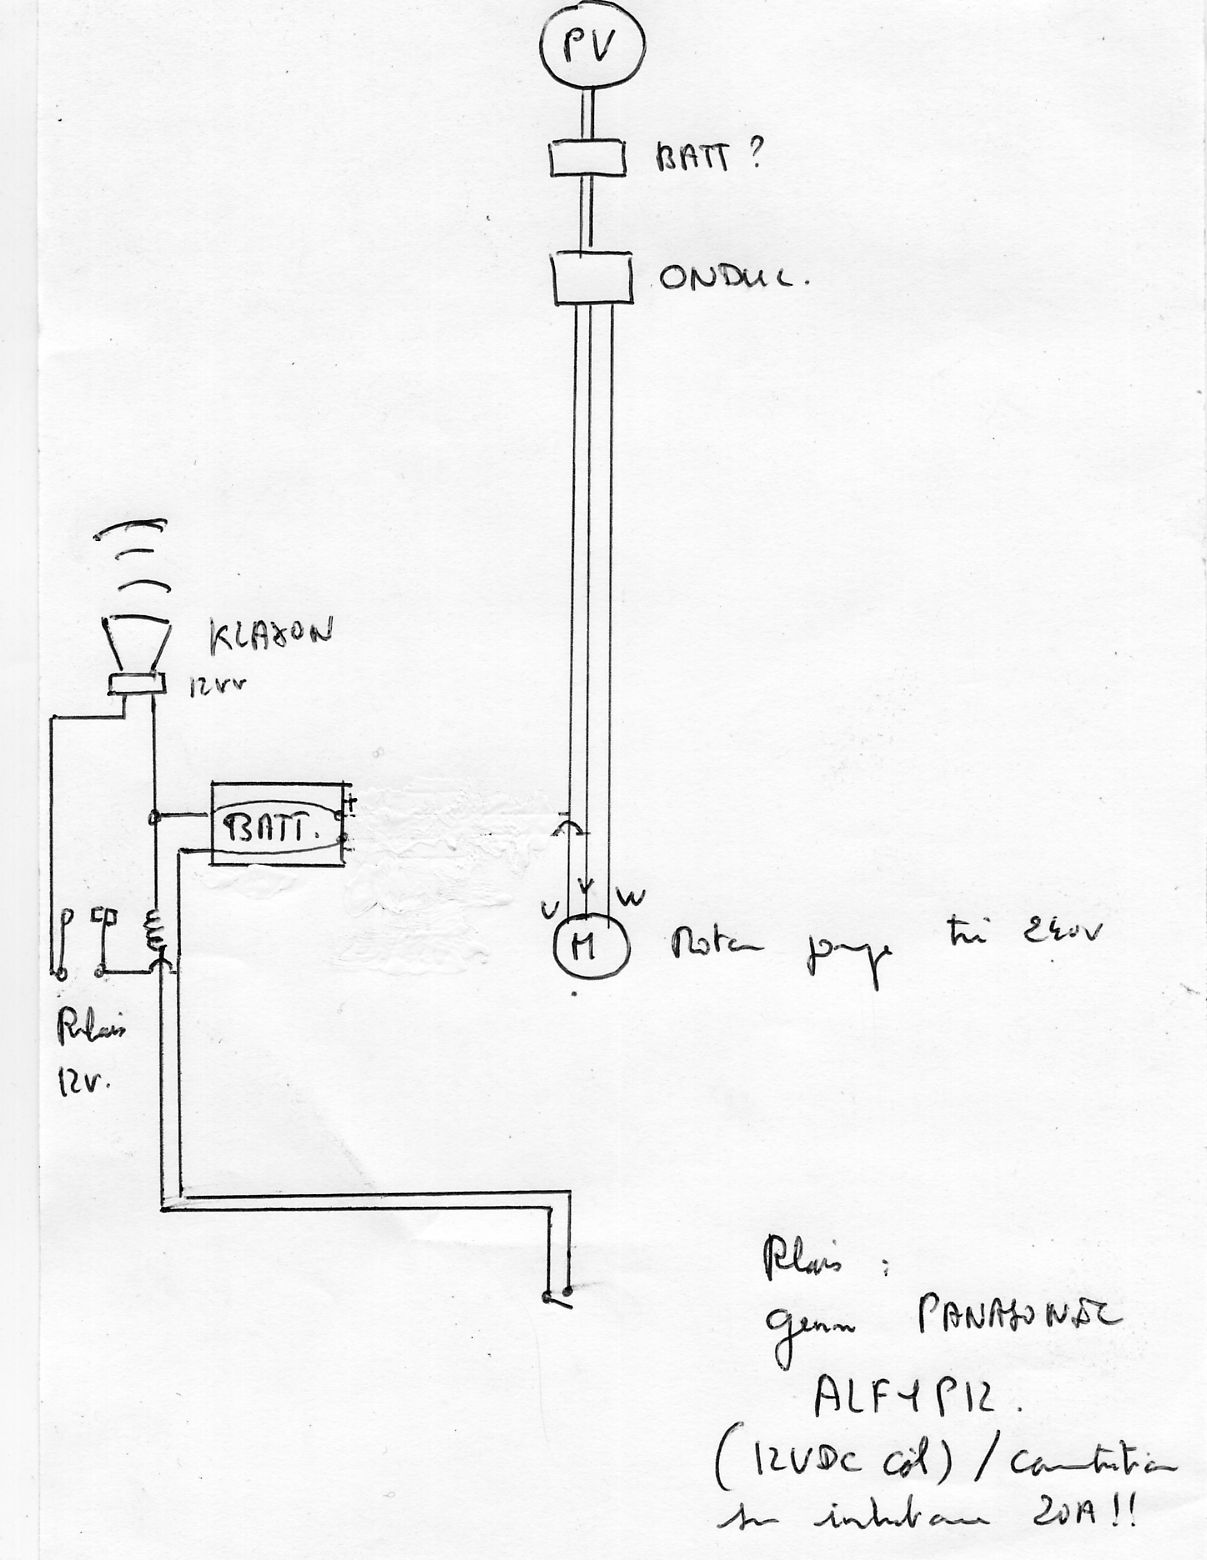 PV
BATT ?
ONDUL.
KLAXON
12V
+
BATT.
-
U V W
M
Moteur pompe tri 240V
Relais
12V.
Relais :
genre PANASONIC
ALF1P12.
(12VDC coil) / commutation
sur inductance 20A !!